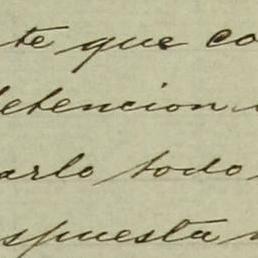 te que co
detencion
arlo todo
spuesta